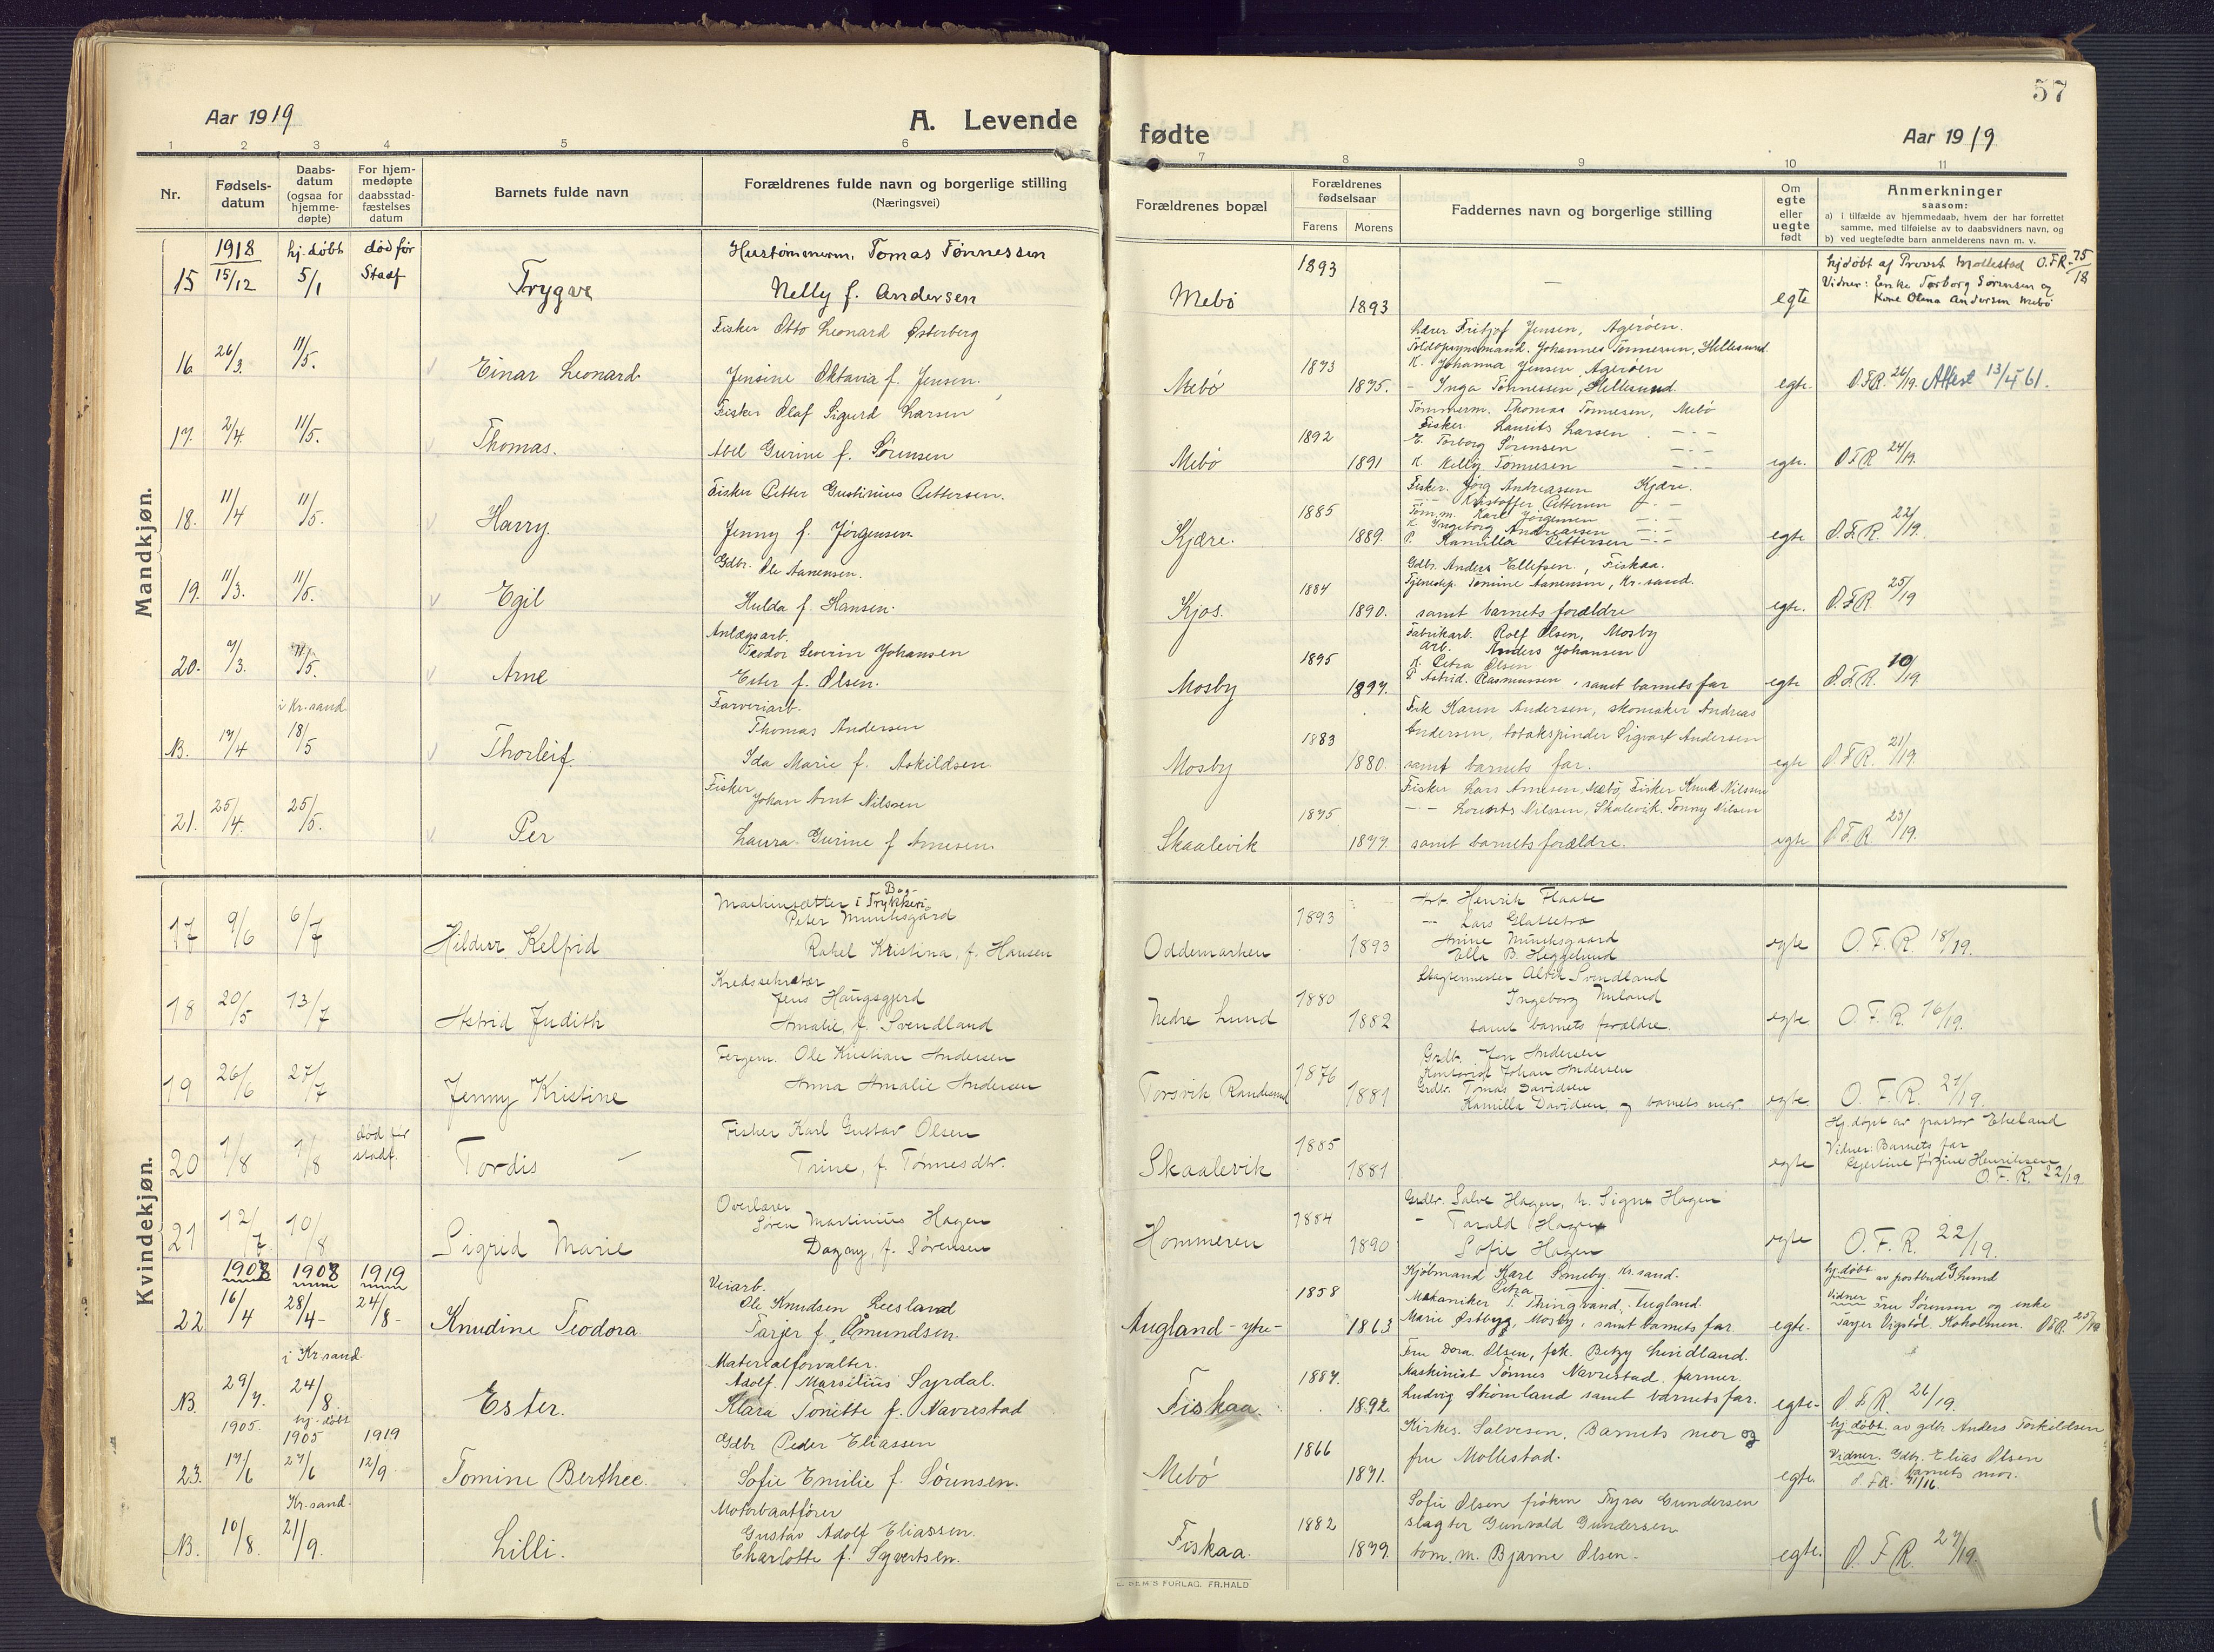 57
Aar 1919
A. Levende
fødte
Aar 1919
1 2 3 4 5 6 7 8 9 10 11
Nr.
Fødsels-
datum
Daabs-
datum
(ogsaa for
hjemme-
døpte)
For hjem-
medøpte
daabsstad-
fæstelses
datum
Barnets fulde navn
Forældrenes fulde navn og borgerlige stilling
(Næringsvei)
Forældrenes bopæl
Forældrenes
fødselsaar
Farens Morens
Faddernes navn og borgerlige stilling
Om
egte
eller
uegte
født
Anmerkninger
saasom:
a) i tilfælde av hjemmedaab, hvem der har forrettet
samme, med tilføielse av to daabsvidners navn, og
b) ved uegtefødte barn anmelderens navn m. v.
Mandkjøn.
1918 hj. døbt død før
15 15/12 5/1 Stadf
Trygve
Hustømmerm. Tomas Tønnessen
Nelly f. Andersen
Mebø 1893 1893 — egte
hjdøbt af Provst Mollestad O.F.R. 75/18
Vidner: Enke Torborg Sørensen og
Kone Olena Andersen Mebø
16 26/3. 11/5. Einar Leonard
Fisker Otto Leonard Østerberg
Jensine Oktavia f. Jensen.
Mebø 1893 1895.
Lærer Fritjof Jensen, Agerøen.
Toldopsynsmand. Johannes Tønnessen, Hellesund.
K. Johanna Jensen, Agerøen
- Inga Tønnessen, Hellesund.
egte. O.F.R. 26/19. Attest 13/4 61.
17. 2/4. 11/5. Thomas.
Fisker Olaf Sigurd Larsen
Abel Gurine f. Sørensen
Mebø 1892 1891
Tømmerm. Thomas Tønnesen, Mebø
Fisker Laurits Larsen -·-
E. Torborg Sørensen -·-
K. Nelly Tønnesen -·-
egte. O.F.R 24/19.
18. 11/4 11/5. Harry.
Fisker Petter Gustinius Pettersen.
Jenny f. Jørgensen
Kjære. 1885 1889.
Fisker. Jørg Andreassen Kjære.
-·- Kristoffer Pettersen -·-
Tøm.m. Karl Jørgensen -·-
K. Ingeborg Andreassen -·-
P. Kamilla Pettersen -·-
egte O.F.R. 22/19.
19. 11/3. 11/5. Egil
Gdbr. Ole Aanensen.
Hulda f. Hansen.
Kjos. 1884 1890.
Gdbr. Anders Ellefsen, Fiskaa.
Tjenestep. Tomine Aanensen, Kr. sand.
samt barnets forældre
egte. O.F.R. 25/19
20. 7/3. 11/5. Arne
Anlægsarb.
Teodor Severin Johansen
Ester f. Olsen.
Mosby 1895 1897.
Fabrikarb. Rolf Olsen, Mosby
Arb. Anders Johansen
K. Petra Olsen
P Astrid Rasmussen, samt barnets far
egte O.F.R. 10/19
i Kr.sand
NB. 17/4 18/5 Thorleif.
Farveriarb.
Thomas Andersen
Ida Marie f. Askildsen
Mosby 1883 1880.
Frk Karen Andersen, skomaker Andreas
Andersen, tobakspinder Sigvart Andersen
samt barnets far.
egte O.F.R. 21/19.
21. 25/4. 25/5. Per
Fisker
Johan Arnt Nilssen
Laura Gurine f Arnesen.
Skaalevik 1875 1877.
Fisker Lars Arnesen, Mebø, Fisker Knut Nilssen
-·- Lourits Nilssen, Skalevik. Tonny Nilsen
samt barnets forældre.
egte O.F.R 23/19.
Kvindekjøn.
17 9/6 6/7 Hildur Kelfrid
Maskinsætter i Bog-Trykkeri
Peter Munksgård
Rakel Kristina, f. Hansen
Oddemarken 1893 1893
Arb. Henrik Flaate
-- Lars Glattetræ
Anine Munksgaard
Ella B. Heggelund
egte O.F.R. 18/19.
18 20/5 13/7 Astrid Judith
Kredssekretær
Jens Haugsgjerd
Amalie, f. Svendland
Nedre Lund 1880 1882
Slagtermester Alvin Svindland
Ingeborg Miland
samt barnets forældre.
egte O.F.R. 16/19.
19 26/6 27/7 Jenny Kristine
Fergem. Ole Kristian Andersen
Anna Amalie Andersen
Torsvik Randesund 1876 1881
Grdb. Jon Andersen
Kontorist Johan Andersen
Grdbr. Tomas Davidsen
Kamilla Davidsen og barnets mor.
egte O.F.R. 27/19.
20 1/8 1/8 død før stadf. Tordis —
Fisker Karl Gustav Olsen
Trine, f. Tønnesdtr.
Skaalevik 1885 1881 egte
Hj.døpt av pastor Ekeland
Vidner: Barnets far
Gjertine Jørgine Henriksen
O.F.R. 22/19
21 12/7 10/8 Sigrid Marie
Overlærer
Søren Martinius Hagen
Dagny, f. Sørensen
Hommeren 1884 1890
Grdbr. Salve Hagen, h. Signe Hagen
- Tarald Hagen
Sofie Hagen
egte O.F.R. 22/19.
1908 1908 1919
22 16/4 28/4- 24/8- Knudine Teodora
Veiarb.
Ole Knudsen Leesland
Tarjer f. Åmundsen.
Augland - ytre - 1858 1863
Kjøbmand Karl Smeby. Kr.sand.
Petra —
Mekaniker T. Thingvand. Augland.
Marie Østbyg, Mosby, samt barnets far
egte.
hj.døbt av postbud G Lund
Vidner Fru Sørensen og enke
Tarjer Vigstøl. Koholmen. O.F.R. 25/19
i Kr sand.
NB. 29/7. 24/8. Ester.
Materialforvalter.
Adolf Marsilius Syrdal.
Klara Tonette f. Navrestad
Fiskaa. 1887. 1892.
Fru Dora Olsen, frk. Betzy Lindland.
Maskinist Tønnes Navrestad, farmer.
Ludvig Strømland samt barnets far.
egte- O.F.R. 26/19.
1905. hj. døbt 1905 1919
23. 17/6 27/6 12/9 Tomine Berthee.
Gdbr Peder Eliassen
Sofie Emilie f. Sørensen.
Mebø 1866 1871.
Kirkes. Salvesen. Barnets mor og
fru Mollestad.
egte.
hj. døbt. av gdbr Anders Torkildsen
Vidner. Gdb. Elias Olsen
barnets mor.
O.F.R. 41/16.
Kr.sand.
NB. 10/8. 21/9. Lilli.
Motorbaatfører
Gustav Adolf Eliassen.
Charlotte f. Syvertsen.
Fiskaa. 1882 1879.
Sofie Olsen frøken Thyra Gundersen
slagter Gunvald Gundersen
tøm. m. Bjarne Olsen.
egte. O.F.R. 27/19.
SEM'S FORLAG, FR.HALD